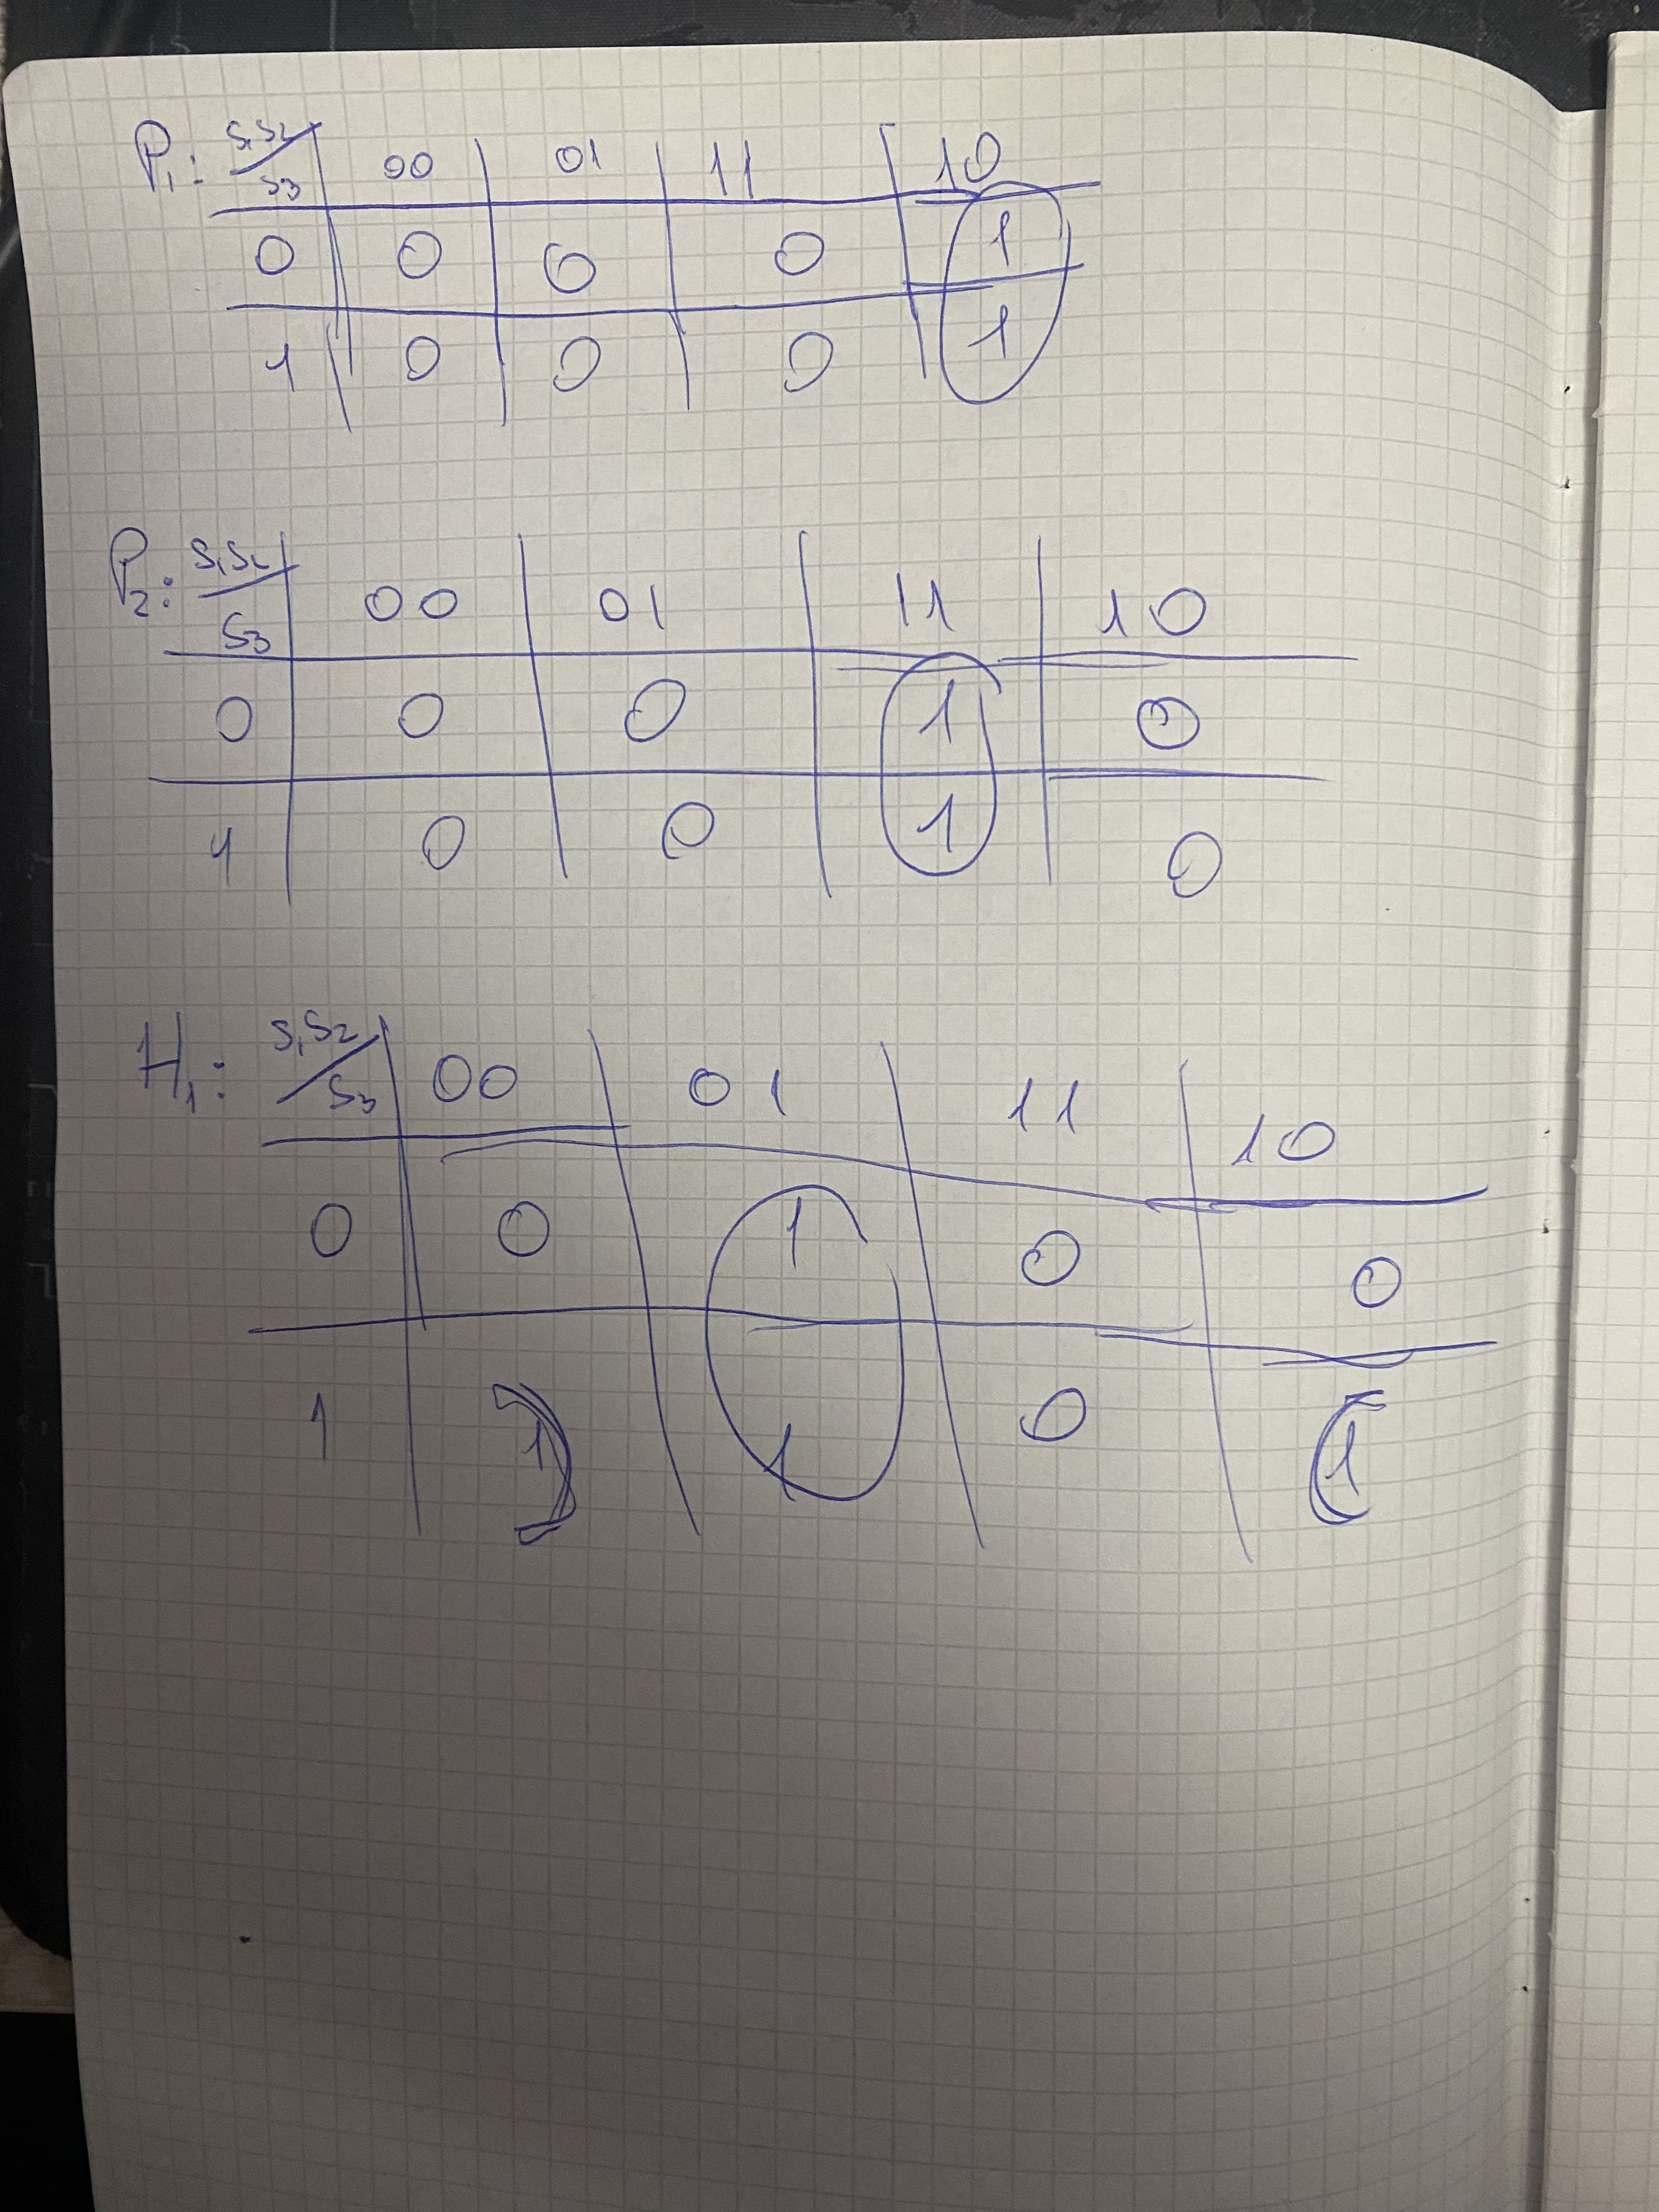 P₁: S₁S₂/S₃ 00 01 11 10
0 0 0 0 1
1 0 0 0 1
P₂: S₁S₂/S₃ 00 01 11 10
0 0 0 1 0
1 0 0 1 0
H₁: S₁S₂/S₃ 00 01 11 10
0 0 1 0 0
1 1 1 0 1